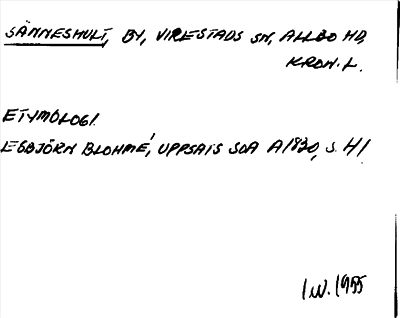 SÄNNESHULT, BY, VIRESTADS SN, ALLBO HD,
KRON. L.
ETYMOLOGI.
EGBJÖRN BLOHMÉ, UPPSATS SOA A1830, S. 41
1955